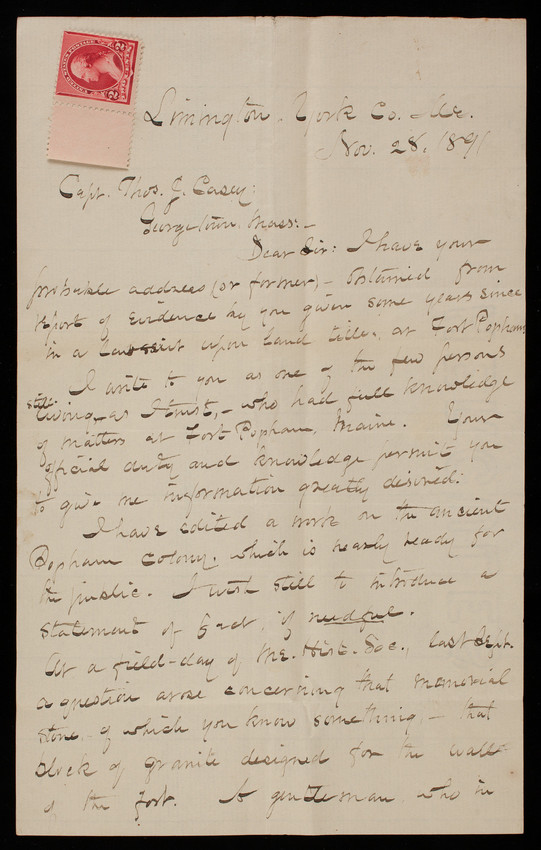 Limington - York Co. Me.
Nov. 28, 1891
Capt. Thos. J. Casey:
Georgetown, Mass:-
Dear Sir: I have your
probable address (or former) - obtained from
report of evidence by you given some years since
in a lawsuit upon land title, at Fort Popham
I write to you as one of the few persons
still living, as I trust, - who had full knowledge
of matters at Fort Popham, Maine. Your
official duty and knowledge permit you
to give me information greatly desired:
I have edited a work on the ancient
Popham colony, which is nearly ready for
the public. I wish still to introduce a
statement of fact, if needful.
At a field-day of Me. Hist. Soc., last Sept.
a question arose concerning that memorial
stone, - of which you know something, - that
block of granite designed for the wall
of the fort. A gentleman, who in